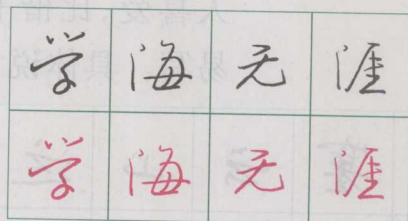 学海无涯
学海无涯